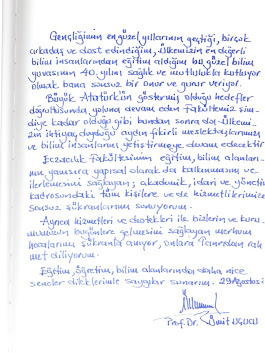 Gençliğimin en güzel yıllarının geçtiği, birçok
arkadaş ve dost edindiğim, ülkemizin en değerli
bilim insanlarından eğitim aldığım bu güzel bilim
yuvasının 40. yılını sağlık ve mutlulukla kutluyor
olmak bana sonsuz bir onur ve gurur veriyor.
Büyük Atatürk'ün göstermiş olduğu hedefler
doğrultusunda yoluna devam eden Fakültemiz şim-
diye kadar olduğu gibi bundan sonra da ülkemi-
zin ihtiyaç duyduğu aydın fikirli meslektaşlarımızı
ve bilim insanlarını yetiştirmeye devam edecektir
Eczacılık Fakültesinin eğitim, bilim alanları-
nın yanısıra yapısal olarak da kalkınmasını ve
ilerlemesini sağlayan; akademik, idari ve yönetim
kadrosundaki tüm kişilere ve de hizmetlilerimize
sonsuz şükranlarımı sunuyorum.
Ayrıca hizmetleri ve destekleri ile bizlerin ve kuru-
mumuzun bugünlere gelmesini sağlayan merhum
hocalarımı şükranla anıyor, onlara Tanrıdan rah
met diliyorum.
Eğitim, Öğretim, bilim alanlarında daha nice
seneler dileklerimle saygılar sunarım. 29 Ağustos
Prof. Dr. Ümit UĞUCU